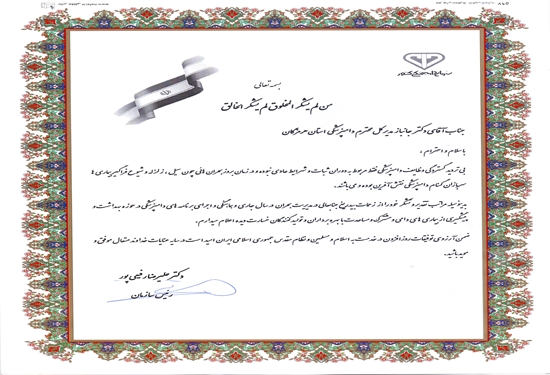 بسمه تعالی
من لم یشکر المخلوق لم یشکر الخالق
جناب آقای دکتر جانباز مدیر کل محترم دامپزشکی استان هرمزگان
با سلام و احترام ؛
بی تردید گستردگی وظایف دامپزشکی فقط مربوط به دوران ثبات و شرایط عادی نبوده و در زمان بروز بحران هائی چون سیل ، زلزله و شیوع فراگیر بیماری ها
سربازان گمنام دامپزشکی نقش آفرین بوده و می باشند.
بدینوسیله مراتب تقدیر و تشکر خود را از زحمات بیدریغ جنابعالی در مدیریت بحران در سال جاری و اجرای برنامه های دامپزشکی در حوزه بهداشت و
پیشگیری از بیماری های دامی و مشترک و مساعدت با بهره برداران و تولید کنندگان خسارت دیده اعلام میدارم.
ضمن آرزوی توفیقات روزافزون در خدمت به اسلام و مسلمین و نظام مقدس جمهوری اسلامی ایران امید است در سایه عنایات خداوند متعال موفق و
موید باشید.
دکتر علیرضا رفیعی پور
رئیس سازمان